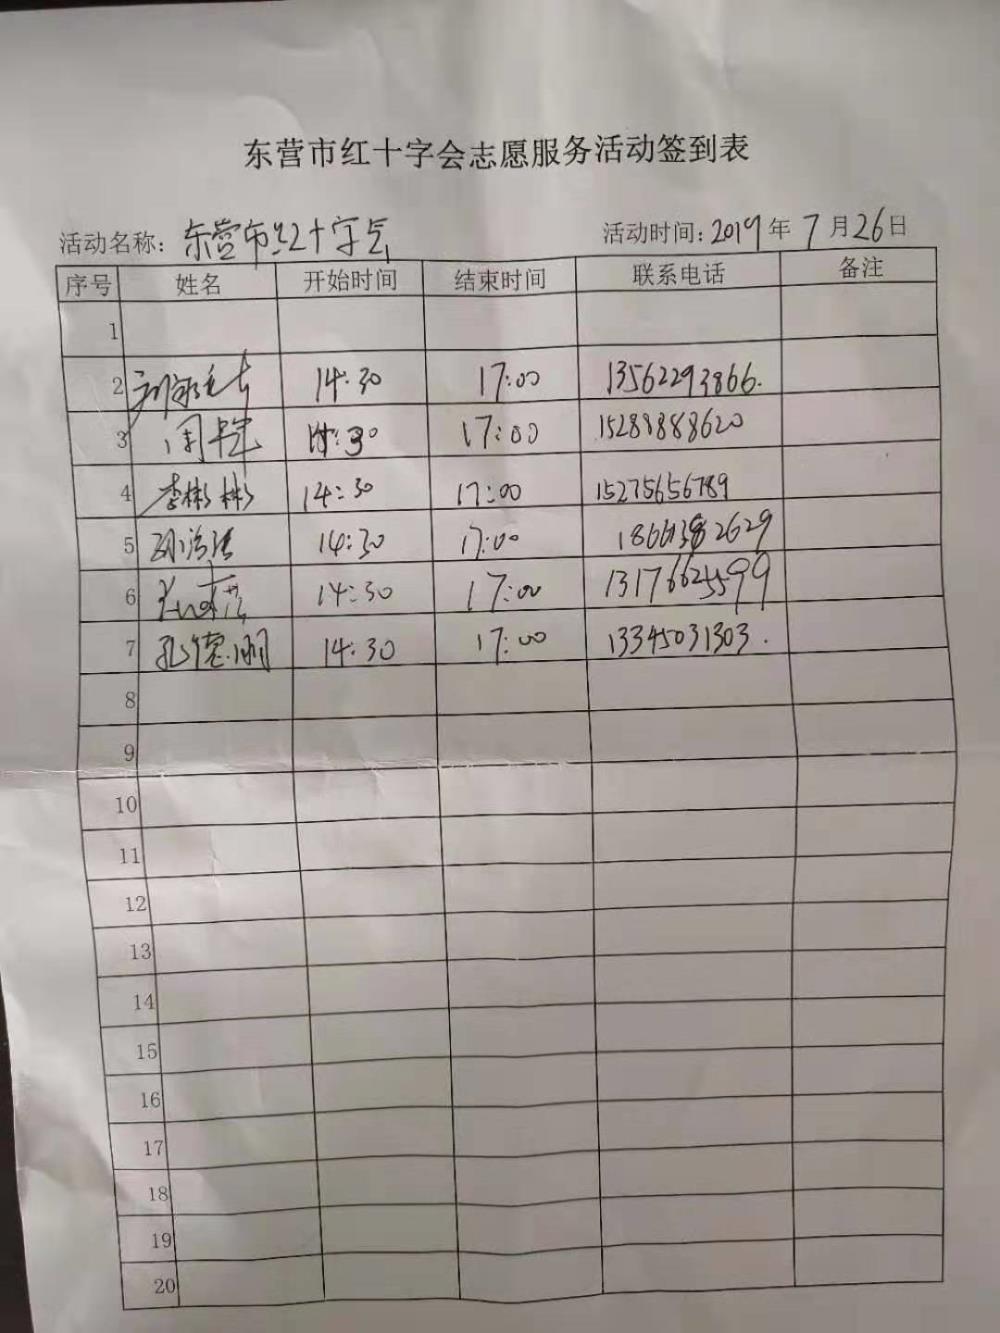 东营市红十字会志愿服务活动签到表
活动名称: 东营市红十字会 活动时间: 2019年 7月26日
序号 姓名 开始时间 结束时间 联系电话 备注
1
2 14:30 17:00 13562293866.
3 14:30 17:00 15288888620
4 李彬彬 14:30 17:00 15275656789
5 14:30 17:00
6 14:30 17:00 13176625599
7 孔德明 14:30 17:00 13345031303.
8
9
10
11
12
13
14
15
16
17
18
19
20